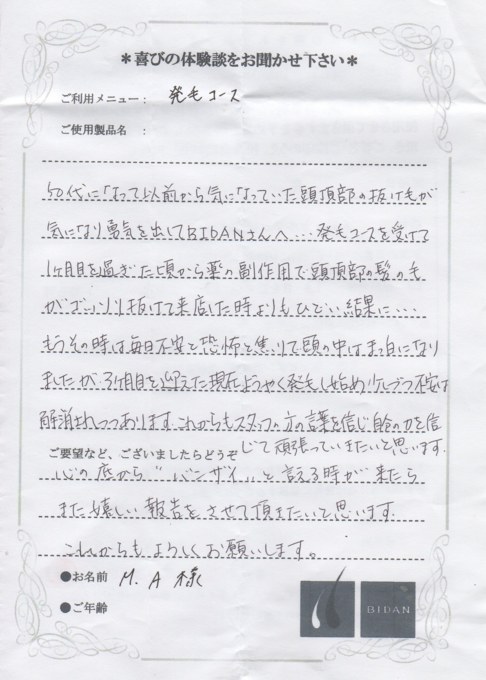 ＊喜びの体験談をお聞かせ下さい＊
ご利用メニュー： 発毛コース
ご使用製品名 ：
50代になって以前から気になっていた頭頂部の抜け毛が
気になり勇気を出してBIDANさんへ...発毛コースを受けて
1ヶ月目を過ぎた頃から薬の副作用で頭頂部の髪の毛
がゴッソリ抜けて来店した時よりもひどい結果に....
もうその時は毎日不安と恐怖と焦りで頭の中はまっ白になり
ましたが3ヶ月目を迎えた現在ようやく発毛し始め少しづつ不安は
解消されつつあります。これからもスタッフの方の言葉を信じ自分の力を信
じて頑張っていきたいと思います。
ご要望など、ございましたらどうぞ
心の底から"バンザイ"と言える時が来たら
また嬉しい報告をさせて頂きたいと思います。
これからもよろしくお願いします。
●お名前 M.A 様
●ご年齢
BIDAN